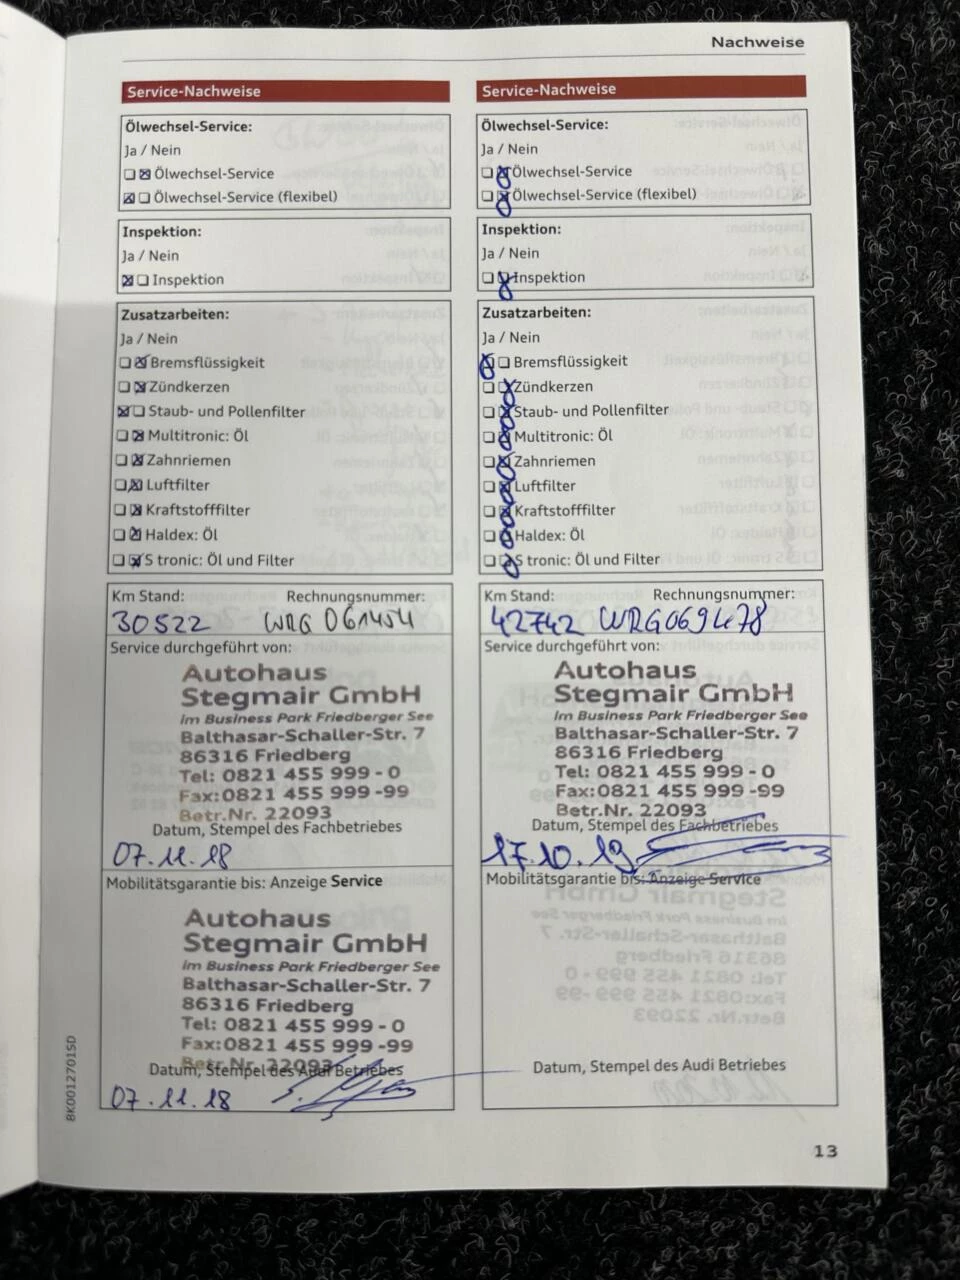 Nachweise
Service-Nachweise
Ölwechsel-Service:
Ja / Nein
Ölwechsel-Service
Ölwechsel-Service (flexibel)
Inspektion:
Ja / Nein
Inspektion
Zusatzarbeiten:
Ja / Nein
Bremsflüssigkeit
Zündkerzen
Staub- und Pollenfilter
Multitronic: Öl
Zahnriemen
Luftfilter
Kraftstofffilter
Haldex: Öl
S tronic: Öl und Filter
Km Stand: Rechnungsnummer:
30522 WRG 061454
Service durchgeführt von:
Autohaus
Stegmair GmbH
im Business Park Friedberger See
Balthasar-Schaller-Str. 7
86316 Friedberg
Tel: 0821 455 999 - 0
Fax: 0821 455 999 -99
Betr.Nr. 22093
Datum, Stempel des Fachbetriebes
07.11.18
Mobilitätsgarantie bis: Anzeige Service
Autohaus
Stegmair GmbH
im Business Park Friedberger See
Balthasar-Schaller-Str. 7
86316 Friedberg
Tel: 0821 455 999 - 0
Fax: 0821 455 999 -99
Betr.Nr. 22093
Datum, Stempel des Audi Betriebes
07.11.18
8K0012701SD
Service-Nachweise
Ölwechsel-Service:
Ja / Nein
Ölwechsel-Service
Ölwechsel-Service (flexibel)
Inspektion:
Ja / Nein
Inspektion
Zusatzarbeiten:
Ja / Nein
Bremsflüssigkeit
Zündkerzen
Staub- und Pollenfilter
Multitronic: Öl
Zahnriemen
Luftfilter
Kraftstofffilter
Haldex: Öl
S tronic: Öl und Filter
Km Stand: Rechnungsnummer:
42742 WRG069478
Service durchgeführt von:
Autohaus
Stegmair GmbH
im Business Park Friedberger See
Balthasar-Schaller-Str. 7
86316 Friedberg
Tel: 0821 455 999 - 0
Fax: 0821 455 999 -99
Betr.Nr. 22093
Datum, Stempel des Fachbetriebes
17.10.19
Mobilitätsgarantie bis: Anzeige Service
Datum, Stempel des Audi Betriebes
13